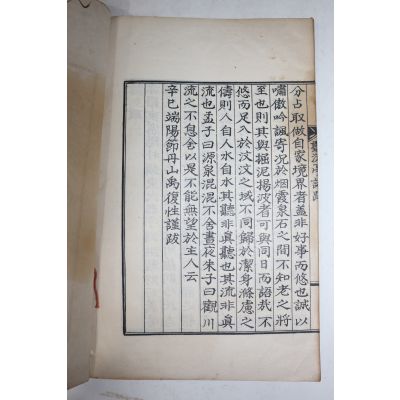 分占取做自家境界者盖非好事而悠也誠以
嘯傲吟諷寄況於烟霞泉石之間不知老之將
至也則其與掘泥揚波者可與同日而語哉不
悠而足入於汶汶之域不同歸於潔身滌慮之
儔則人自人水自水其聽非眞聽也其流非眞
流也孟子曰源泉混混不舍晝夜朱子曰觀川
流之不息舍以是不能無望於主人云
辛巳端陽節丹山禹復性謹跋